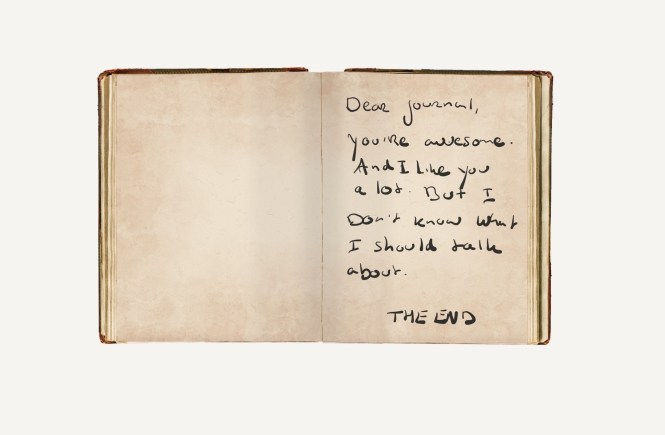 Dear journal,
You're awesome.
And I like you
a lot. But I
Don't know what
I should talk
about.
THE END